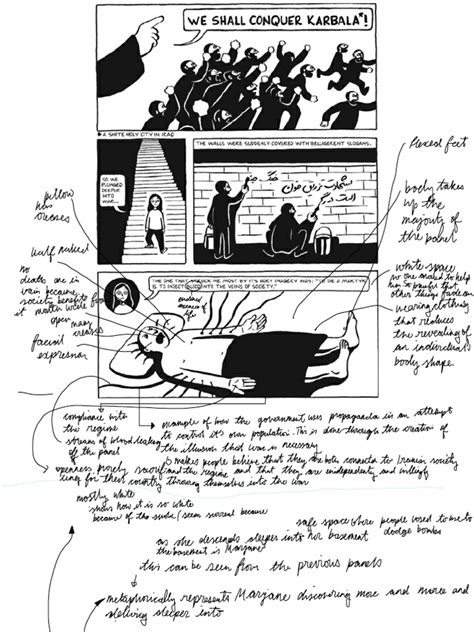 WE SHALL CONQUER KARBALA*!
* A SHIITE HOLY CITY IN IRAQ
SO WE PLUNGED DEEPER INTO WAR...
THE WALLS WERE SUDDENLY COVERED WITH BELLIGERENT SLOGANS.
THE ONE THAT STRUCK ME MOST BY ITS GORY IMAGERY WAS: "TO DIE A MARTYR
IS TO INJECT BLOOD INTO THE VEINS OF SOCIETY."
flexed feet
body takes
up the
majority of
the panel
white space
wearing clothing
that reduces
the revealing of
an individual's
body shape.
pillow
has
creases
half naked
no
death are in
vain because
society benefits from
it
open
many
creases
facial
expression
compliance with
the regime
streams of blood leaking
off the panel
example of how the government uses propaganda in an attempt
to control it's own population. This is done through the creation of
the illusion that war is necessary
makes people believe that they are both connected to Iranian society
and the regime and that they are independently and willingly
throwing themselves into the war
for their country
mostly white
shows how it is so white
because of the / seem surreal because
safe space where people used to
dodge bombs
as she descends deeper into her basement
the basement is Marjane
this can be seen from the previous panels
metaphorically represents Marjane discovering more and more and
delving deeper into